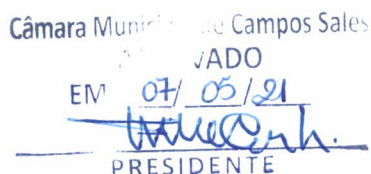 Câmara Mun de Campos Sales
VADO
EM 07/05/21
PRESIDENTE